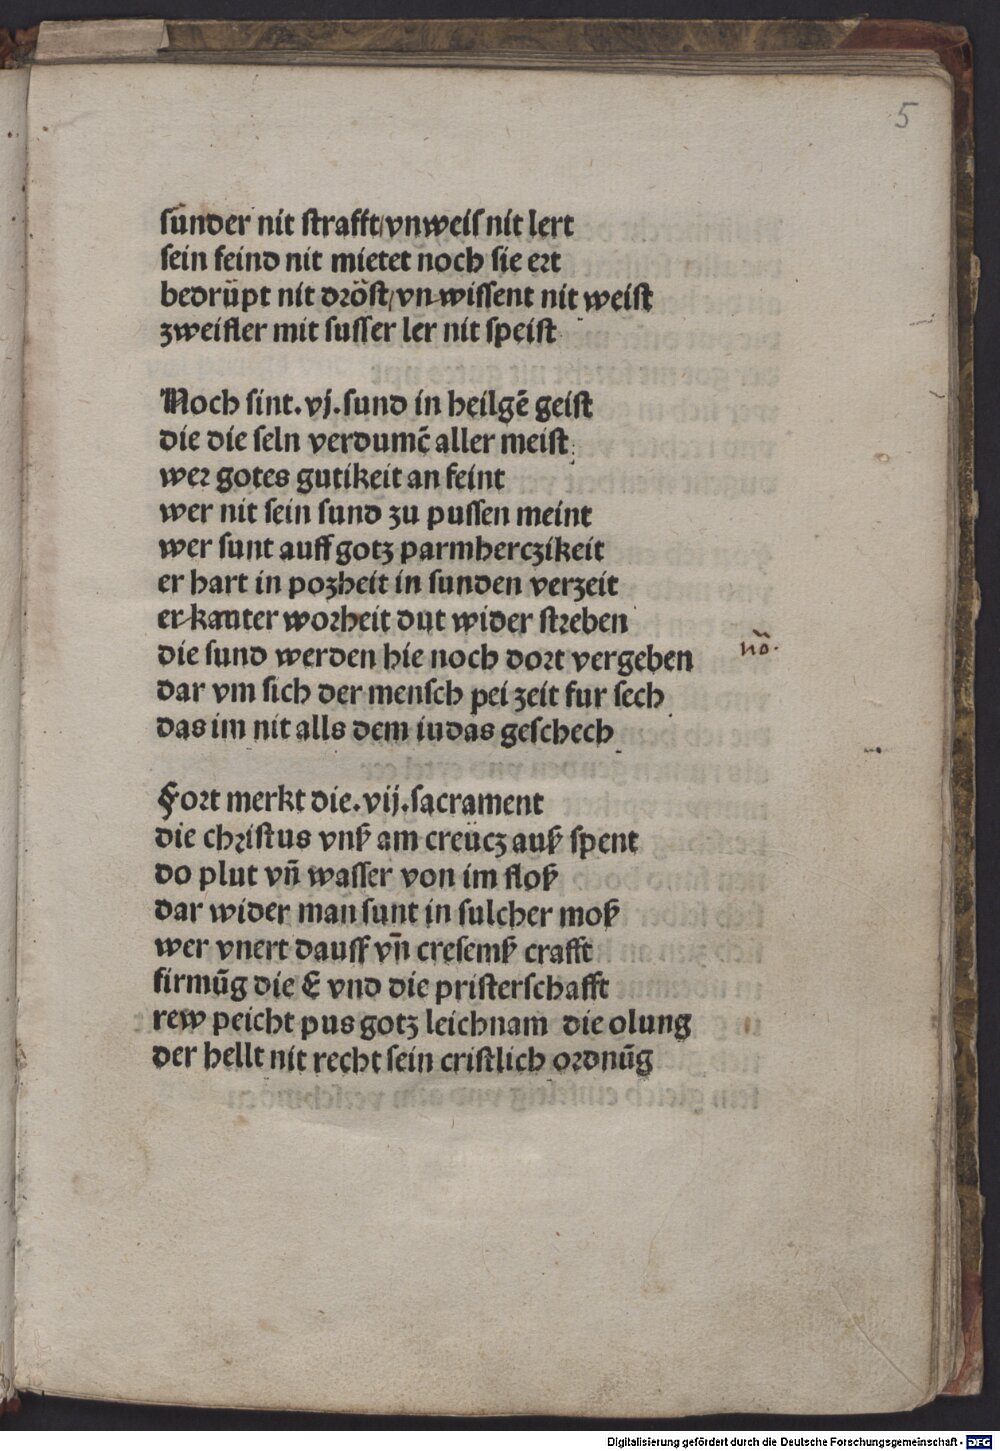 5
sunder nit strafft/vnweis nit lert
sein feind nit mietet noch sie ert
bedrüpt nit dröst/vn wissent nit weist
zweifler mit susser ler nit speist
Noch sint.vj.sund in heilgē geist
die die seln verdumē aller meist
wer gotes gutikeit an feint
wer nit sein sund zu pussen meint
wer sunt auff gotz parmherczikeit
er hart in pozheit in sunden verzeit
er kanter worheit dut wider streben
die sund werden hie noch dort vergeben
nō.
dar vm sich der mensch pei zeit fur sech
das im nit alls dem iudas geschech
Fort merkt die.vij.sacrament
die christus vnß am creücz auß spent
do plut vn̄ wasser von im floß
dar wider man sunt in sulcher moß
wer vnert dauff vn̄ cresemß crafft
firmūg die E vnd die pristerschafft
rew peicht pus gotz leichnam die olung
der hellt nit recht sein cristlich ordnūg
Digitalisierung gefördert durch die Deutsche Forschungsgemeinschaft - DFG